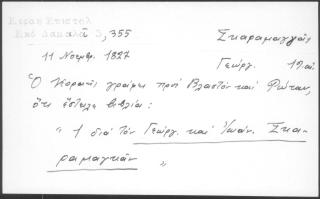 Κοραῆ Ἐπιστολ
Ἐκδ Δαμαλᾶ 3, 355 Σκαραμαγγᾶς
11 Νοεμβρ. 1827 Γεώργ. 19 αἰ
Ὁ Κοραῆς γράφει πρὸς Βλαστὸν καὶ Φώταν,
ὅτι ἔστειλε βιβλία:
"1 διὰ τὸν Γεώργ. καὶ Ἰωάν. Σκα-
ραμαγκᾶν"